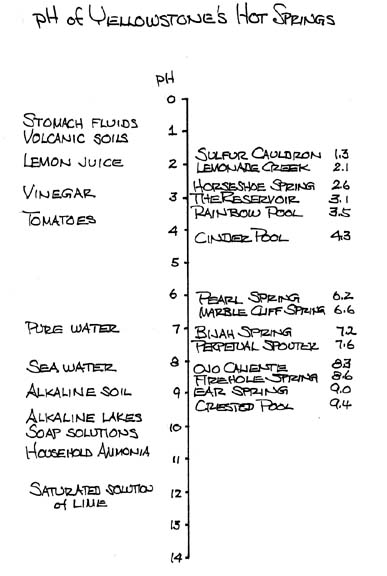 pH of Yellowstone's Hot Springs
pH
0
Stomach Fluids
1
Volcanic Soils
Sulfur Cauldron 1.3
Lemon Juice
2
Lemonade Creek 2.1
Horseshoe Spring 2.6
Vinegar
3
The Reservoir 3.1
Rainbow Pool 3.5
Tomatoes
4
Cinder Pool 4.3
5
6
Pearl Spring 6.2
Marble Cliff Spring 6.6
Pure Water
7
Bijah Spring 7.2
Perpetual Spouter 7.6
Sea Water
8
Ojo Caliente 8.3
Firehole Spring 8.6
Alkaline Soil
9
Ear Spring 9.0
Crested Pool 9.4
Alkaline Lakes
10
Soap Solutions
Household Ammonia
11
Saturated Solution
12
of Lime
13
14